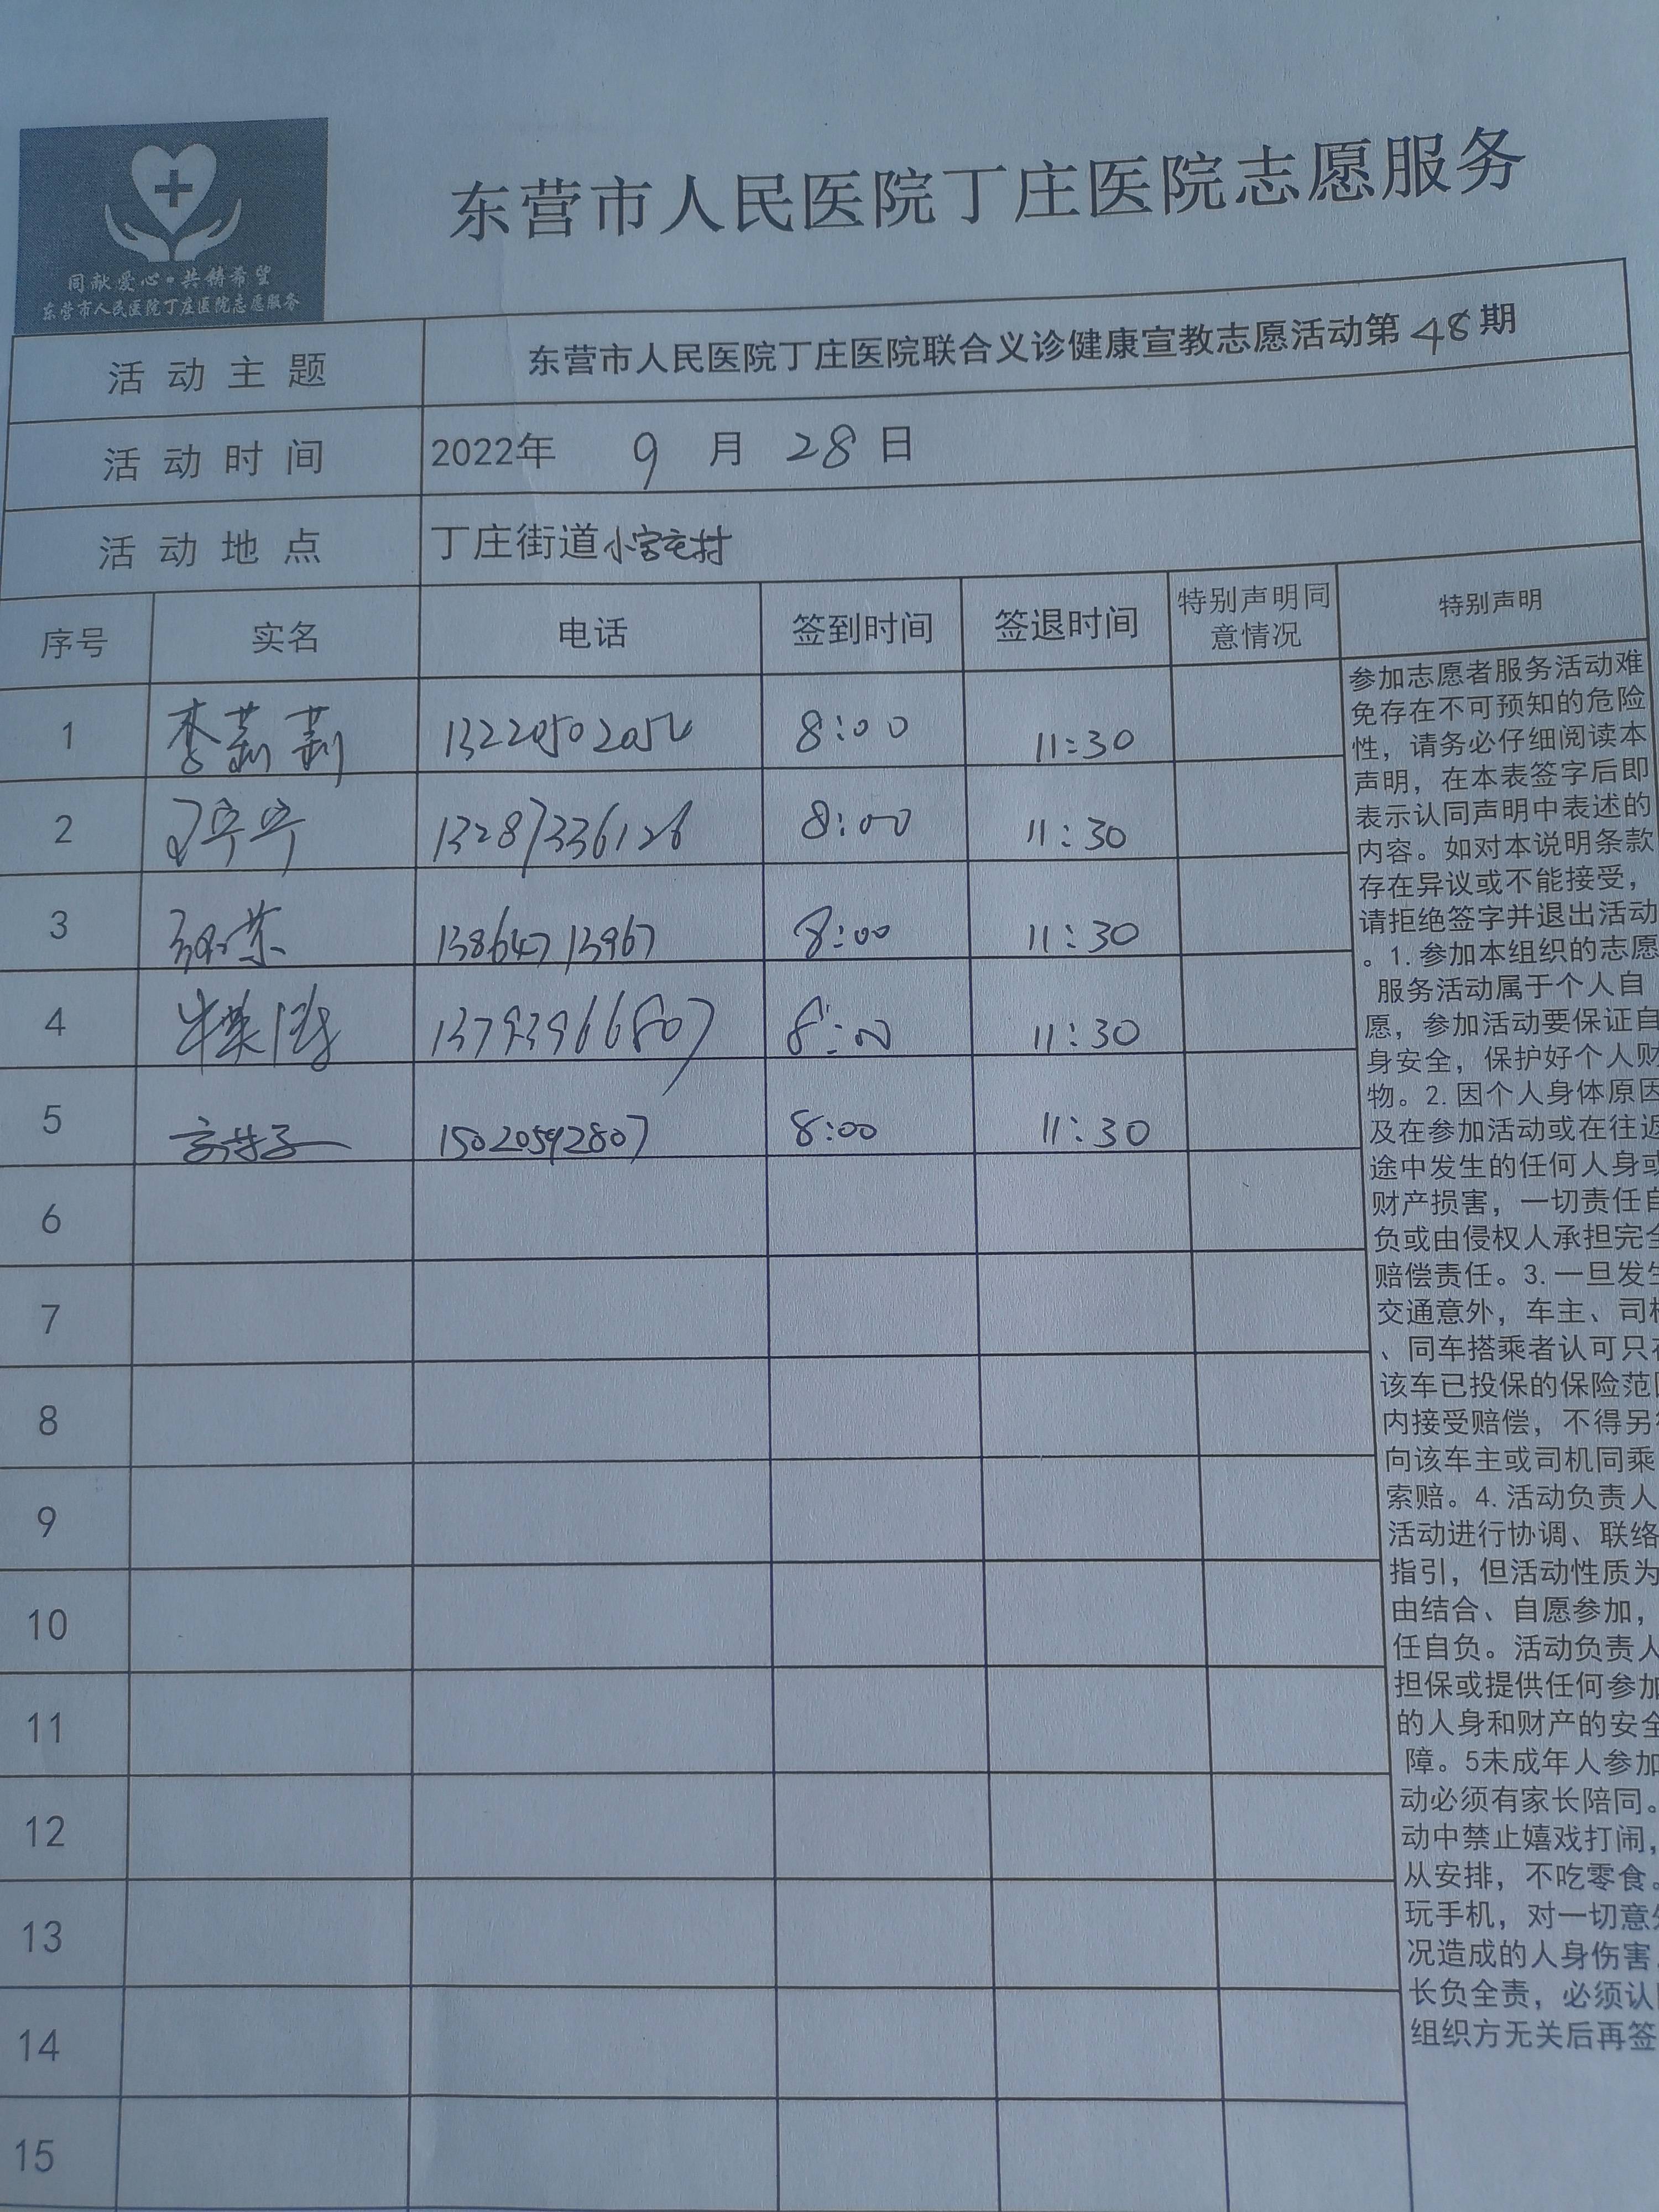 东营市人民医院丁庄医院志愿服务
同献爱心·共铸希望
东营市人民医院丁庄医院志愿服务
活动主题 东营市人民医院丁庄医院联合义诊健康宣教志愿活动第48期
活动时间 2022年 9 月 28 日
活动地点 丁庄街道小宫宅村
序号 实名 电话 签到时间 签退时间 特别声明同意情况 特别声明
1 李莉莉 13220502052 8:00 11:30
2 宁宁 13287336126 8:00 11:30
3 13864713967 8:00 11:30
4 13793966807 8:00 11:30
5 15020592807 8:00 11:30
6
7
8
9
10
11
12
13
14
15
参加志愿者服务活动难
免存在不可预知的危险
性，请务必仔细阅读本
声明，在本表签字后即
表示认同声明中表述的
内容。如对本说明条款
存在异议或不能接受，
请拒绝签字并退出活动
。1.参加本组织的志愿
服务活动属于个人自
愿，参加活动要保证自
身安全，保护好个人财
物。2.因个人身体原因
及在参加活动或在往返
途中发生的任何人身或
财产损害，一切责任自
负或由侵权人承担完全
赔偿责任。3.一旦发生
交通意外，车主、司机
、同车搭乘者认可只在
该车已投保的保险范围
内接受赔偿，不得另
向该车主或司机同乘
索赔。4.活动负责人
活动进行协调、联络
指引，但活动性质为
由结合、自愿参加，
任自负。活动负责人
担保或提供任何参加
的人身和财产的安全
障。5未成年人参加
动必须有家长陪同。
动中禁止嬉戏打闹，
从安排，不吃零食。
玩手机，对一切意外
况造成的人身伤害
长负全责，必须认同
组织方无关后再签